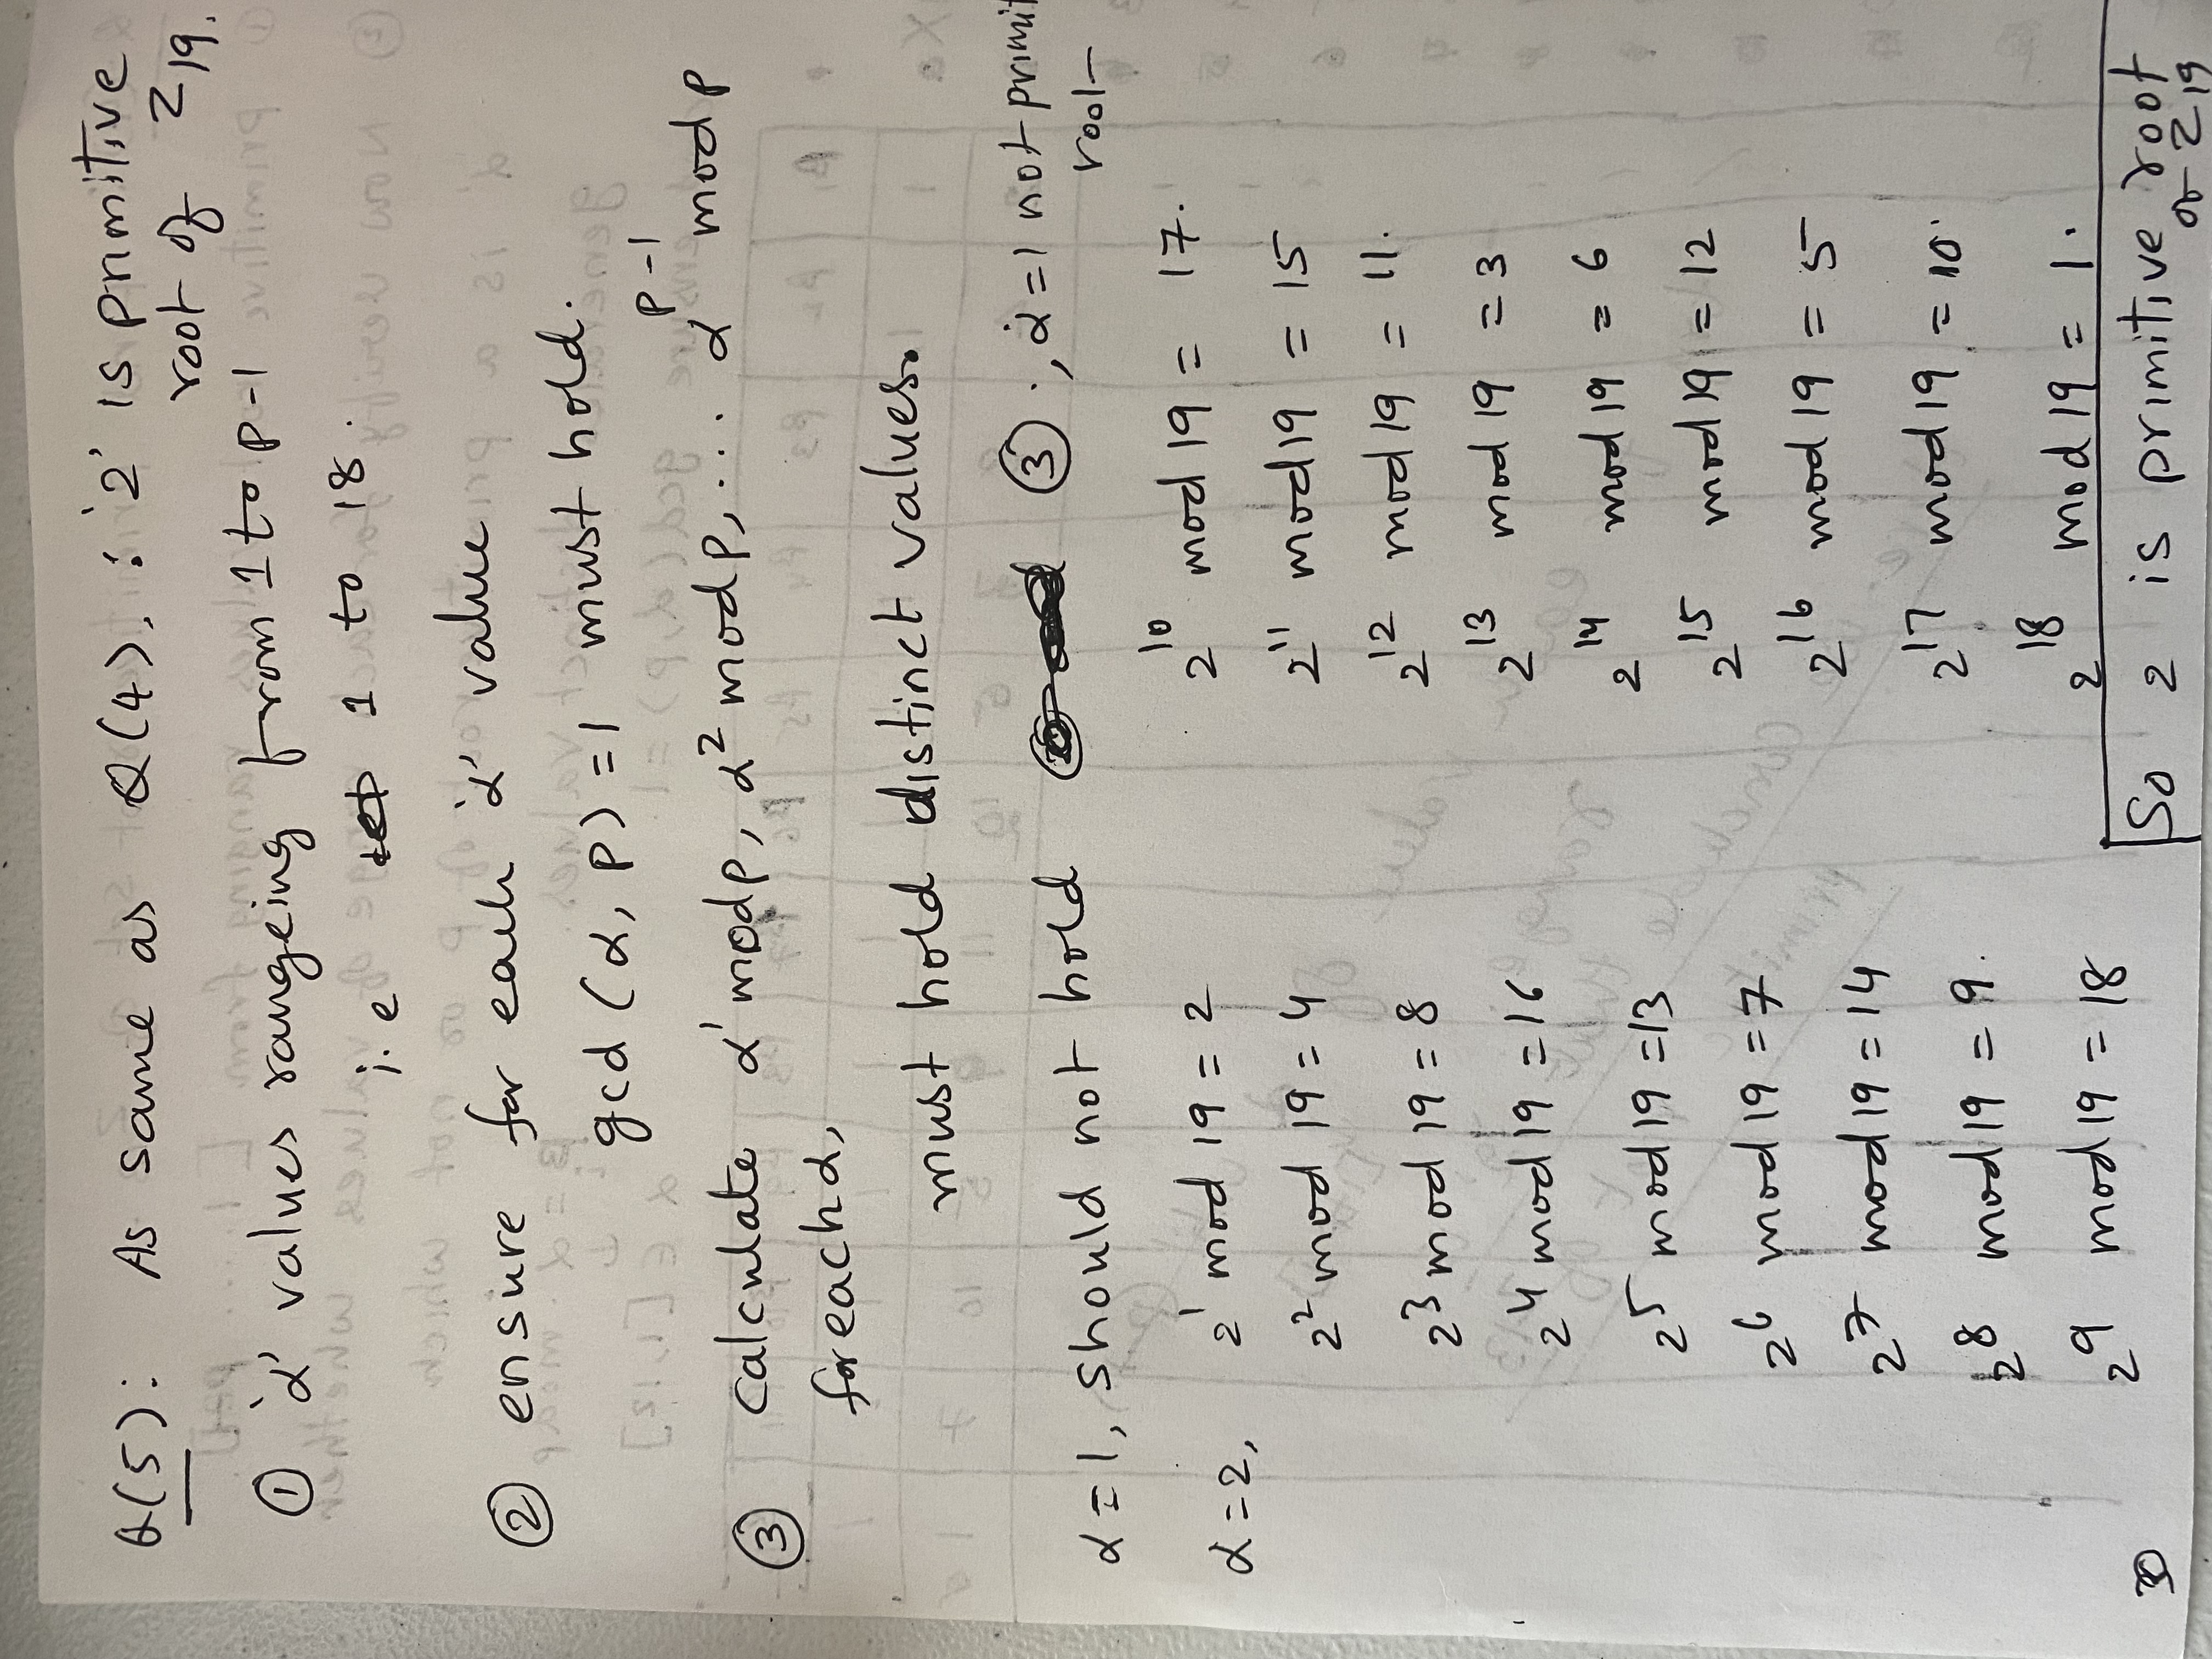 Q(5): As same as Q(4), : '2' is primitive
root of Z19.
① 'α' values rangeing from 1 to p-1
i.e 1 to 18.
② ensure for each 'α' value
gcd (α, p) = 1 must hold.
③ calculate α¹ mod p, α² mod p, ... α^(p-1) mod p
for each α,
must hold distinct values.
α = 1, should not hold ③ ., α = 1 not primit
root
α = 2, 2¹ mod 19 = 2
2² mod 19 = 4
2³ mod 19 = 8
2⁴ mod 19 = 16
2⁵ mod 19 = 13
2⁶ mod 19 = 7
2⁷ mod 19 = 14
2⁸ mod 19 = 9.
2⁹ mod 19 = 18
2¹⁰ mod 19 = 17.
2¹¹ mod 19 = 15
2¹² mod 19 = 11.
2¹³ mod 19 = 3
2¹⁴ mod 19 = 6
2¹⁵ mod 19 = 12
2¹⁶ mod 19 = 5
2¹⁷ mod 19 = 10.
2¹⁸ mod 19 = 1.
So 2 is primitive root
of Z19